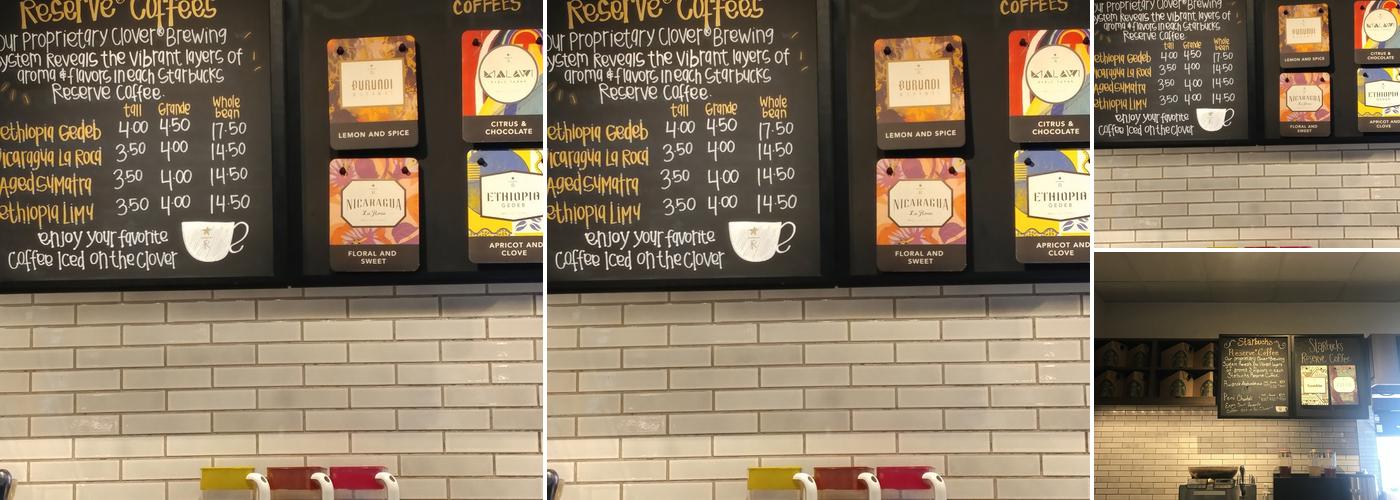 Reserve Coffees
Our Proprietary Clover® Brewing
System Reveals the vibrant layers of
aroma & flavors in each Starbucks
Reserve Coffee.
tall Grande Whole bean
ethiopia Gedeb 4.00 4.50 17.50
Nicaragua La Roca 3.50 4.00 14.50
Aged Sumatra 3.50 4.00 14.50
ethiopia Limu 3.50 4.00 14.50
enjoy your favorite
Coffee Iced on the Clover
R
COFFEES
BURUNDI
LEMON AND SPICE
MALAWI
CITRUS &
CHOCOLATE
NICARAGUA
La Roca
FLORAL AND
SWEET
ETHIOPIA
GEDEB
APRICOT AND
CLOVE
Reserve Coffees
Our Proprietary Clover® Brewing
System Reveals the vibrant layers of
aroma & flavors in each Starbucks
Reserve Coffee.
tall Grande Whole bean
ethiopia Gedeb 4.00 4.50 17.50
Nicaragua La Roca 3.50 4.00 14.50
Aged Sumatra 3.50 4.00 14.50
ethiopia Limu 3.50 4.00 14.50
enjoy your favorite
Coffee Iced on the Clover
R
COFFEES
BURUNDI
LEMON AND SPICE
MALAWI
CITRUS &
CHOCOLATE
NICARAGUA
La Roca
FLORAL AND
SWEET
ETHIOPIA
GEDEB
APRICOT AND
CLOVE
Our Proprietary Clover® Brewing
System Reveals the vibrant layers of
aroma & flavors in each Starbucks
Reserve Coffee.
tall Grande Whole bean
ethiopia Gedeb 4.00 4.50 17.50
Nicaragua La Roca 3.50 4.00 14.50
Aged Sumatra 3.50 4.00 14.50
ethiopia Limu 3.50 4.00 14.50
enjoy your favorite
Coffee Iced on the Clover
BURUNDI
LEMON AND SPICE
MALAWI
CITRUS &
CHOCOLATE
NICARAGUA
FLORAL AND
SWEET
ETHIOPIA
APRICOT AND
CLOVE
Starbucks
Reserve Coffee
Our proprietary Clover Brewing
System Reveals the vibrant layers
of aroma & flavors in each
Starbucks Reserve Coffee.
Starbucks
Reserve Coffee